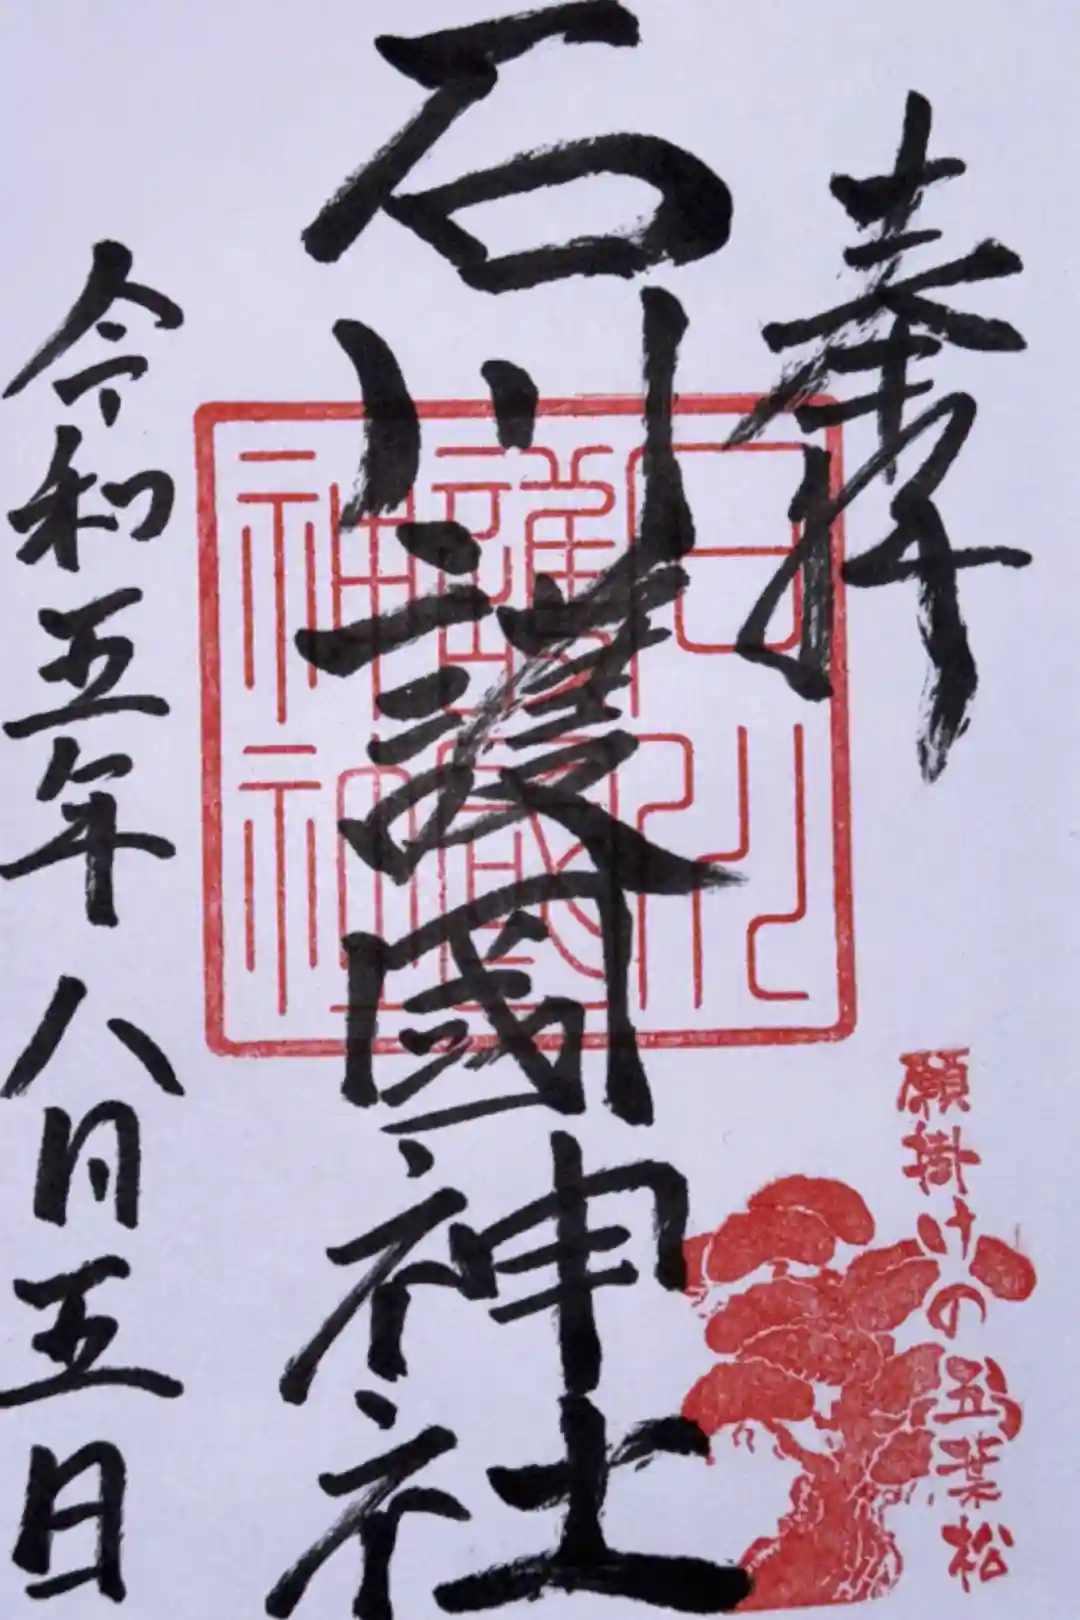 奉拝
石川護國神社
石川護國神社
令和五年八月五日
願掛けの五葉松